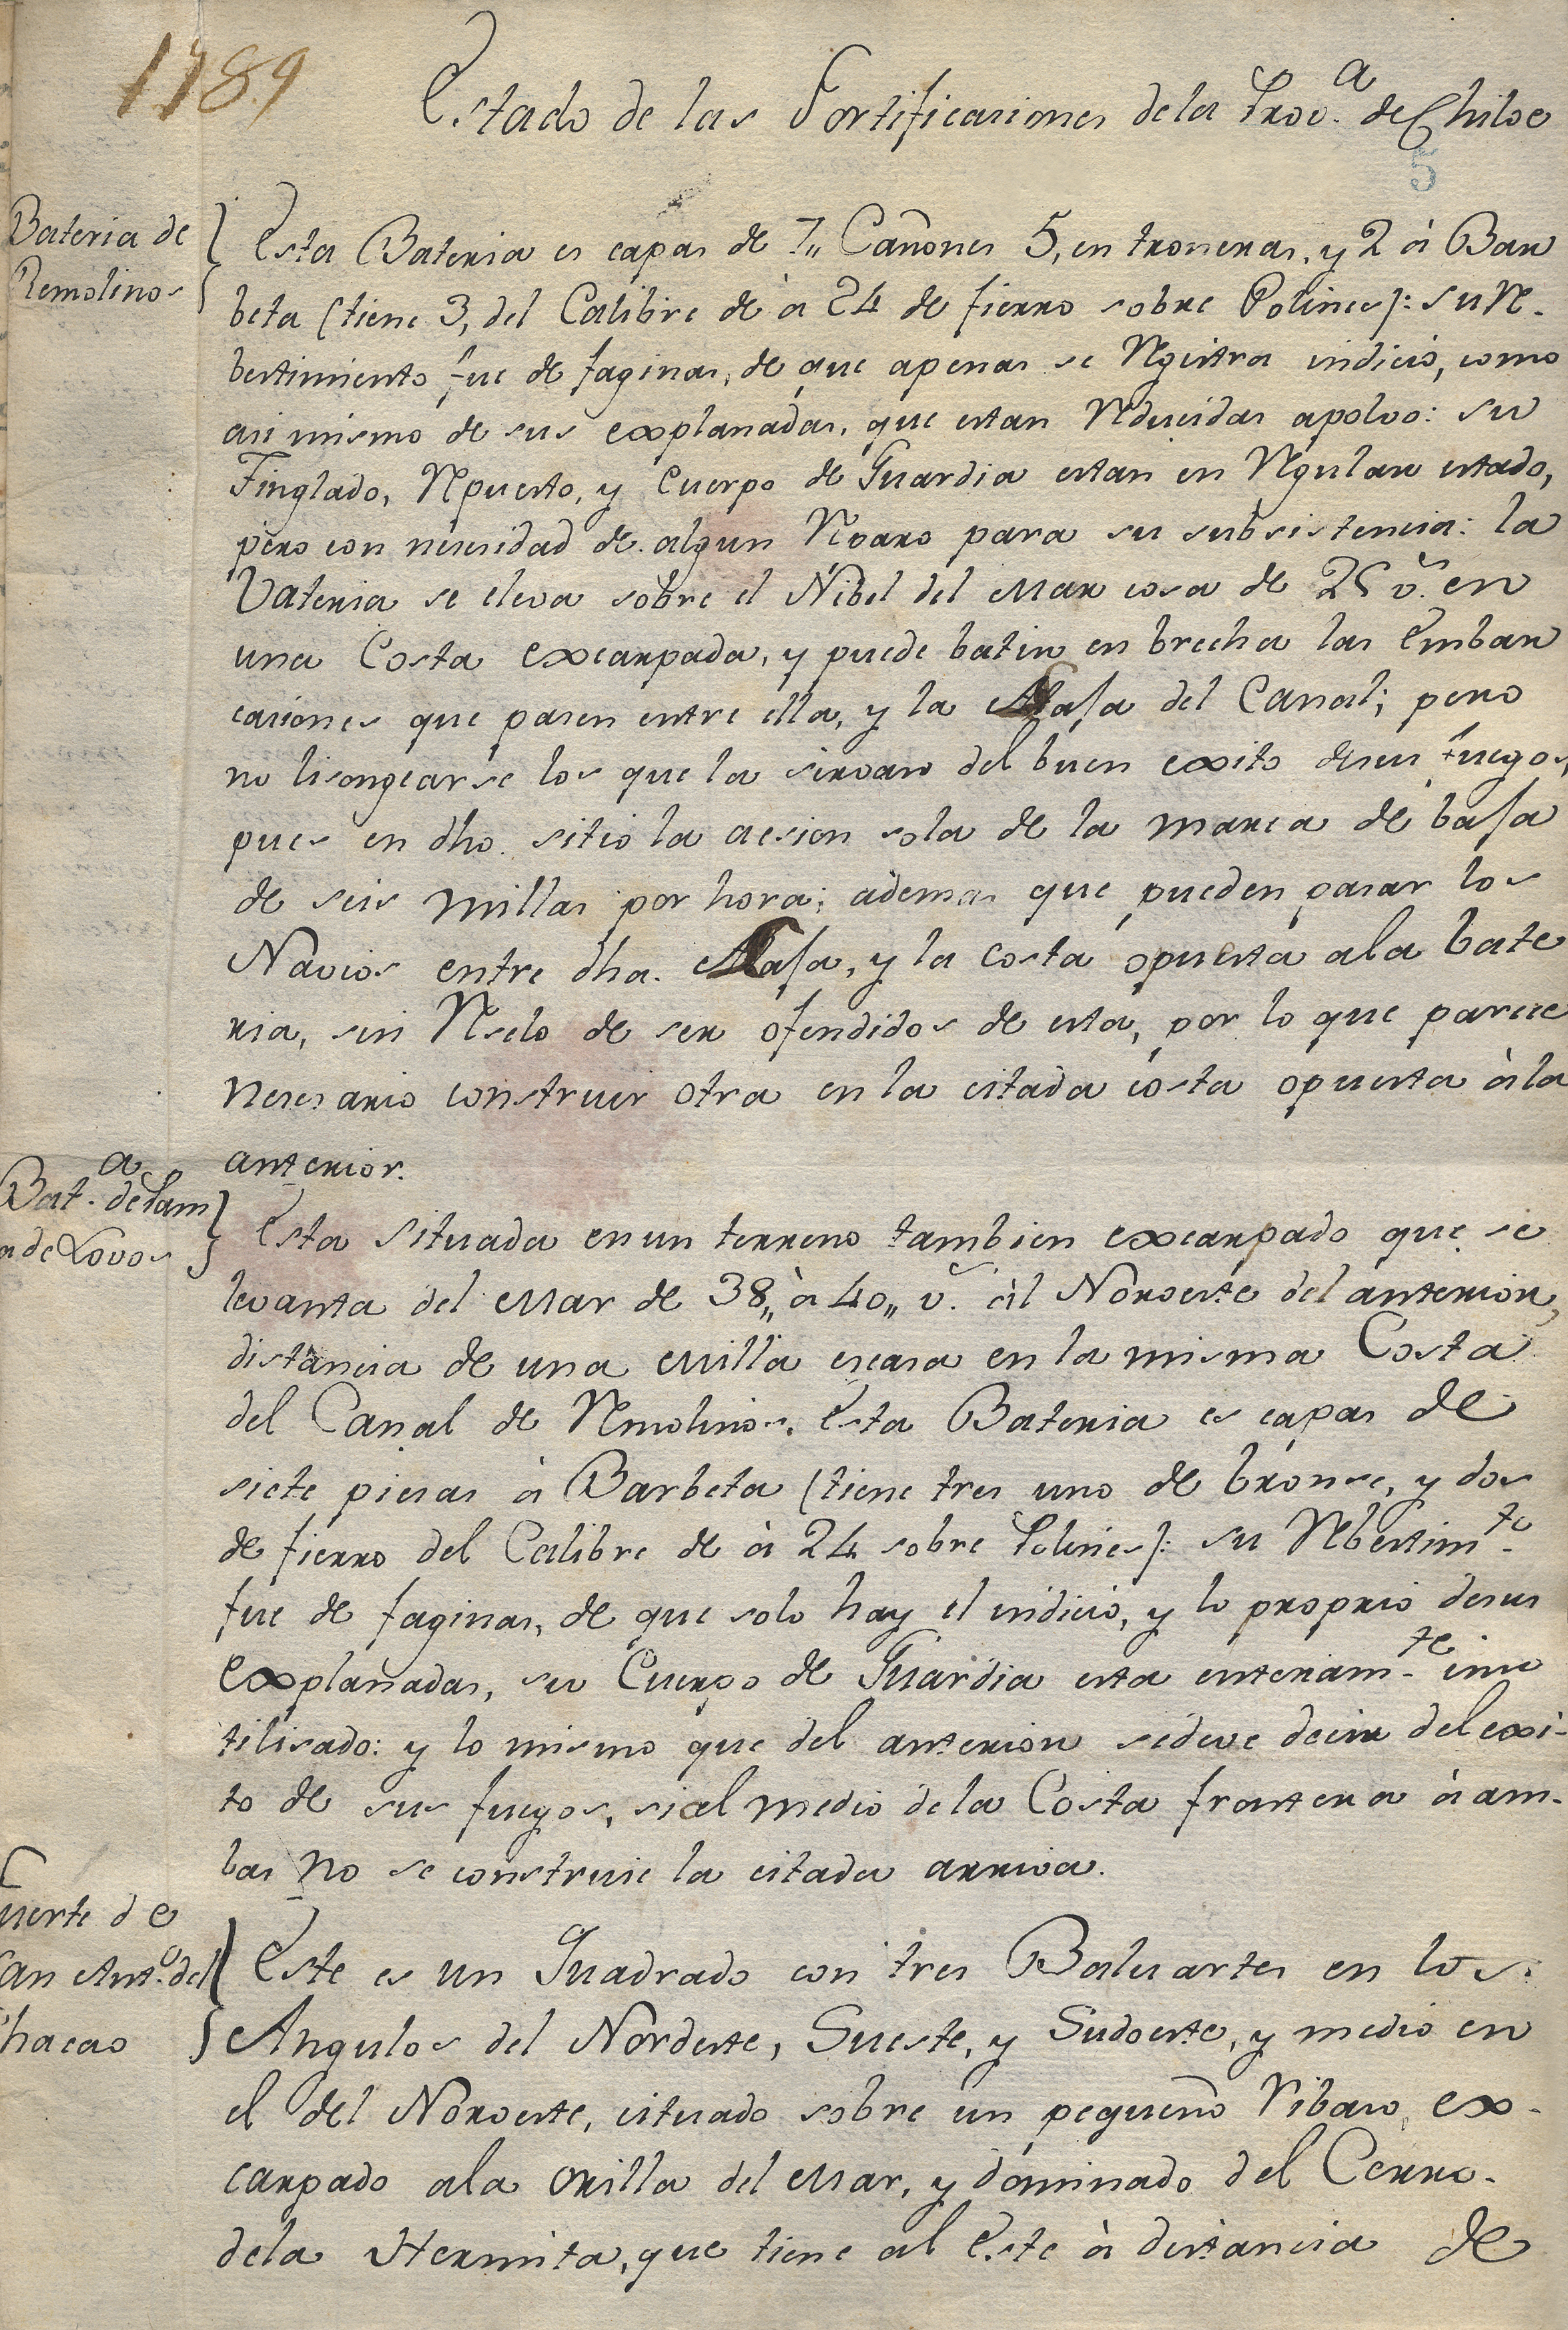 1789
Estado de las Fortificasiones dela Prov.ª de Chiloe
5
Bateria de
Remolinos
Esta Bateria es capas de 7,, Cañones 5, en troneras, y 2 à Bar
beta (tiene 3, del Calibre de à 24 de fierro sobre Polines): su Re-
bestimiento fue de faginas, de que apenas se Registra indicio, como
asi mismo de sus explanadas, que estan Reducidas apolvo: su
Tinglado, Repuesto, y Cuerpo de Guardia estan en Regular estado,
pero con nesesidad de algun Reparo para su subsistencia: la
Vateria se eleva sobre el Nibel del Mar cosa de 25 v.ˢ en
una Costa excarpada, y puede batir en brecha las Embar
casiones que pasen entre ella, y la Laja del Canal; pero
no lisongearse los que la sirvan del buen exito desus fuegos,
pues en dho. sitio la acsion sola de la marea de baja
de seis millas por hora; àdemas que pueden pasar los
Navios entre dha. Laja, y la costa opuesta ala bate
ria, sin Reselo de ser ofendidos de esta, por lo que parece
nesesario construir otra en la citada costa opuesta à la
anterior.
Bat.ª de Pam
a de Lovos
Esta situada en un terreno tambien excarpado que se
levanta del Mar de 38,, à 40,, v.ˢ àl Noroeste del anterior,
distancia de una Milla escasa en la misma Costa
del Canal de Remolinos. Esta Bateria es capas de
siete piesas à Barbeta (tiene tres uno de bronse, y dos
de fierro del Calibre de à 24 sobre Polines): su Rebestim.to
fue de faginas, de que solo hay el indicio, y lo proprio desus
explanadas, su Cuerpo de Guardia esta enteram.te inu
tilisado: y lo mismo que del anterior sedeve decir del exi-
to de sus fuegos, si al medio dela Costa frontera à am-
bas no se construie la citada arriva.
uerte de
an Ant.º del
hacao
Este es un Quadrado con tres Baluartes en los
Angulos del Nordeste, Sueste, y Sudoeste, y medio en
el del Noroeste, cituado sobre un pequeño Ribaso ex-
carpado ala orilla del Mar, y dominado del Cerro
dela Hermita, que tiene al Este à distancia de